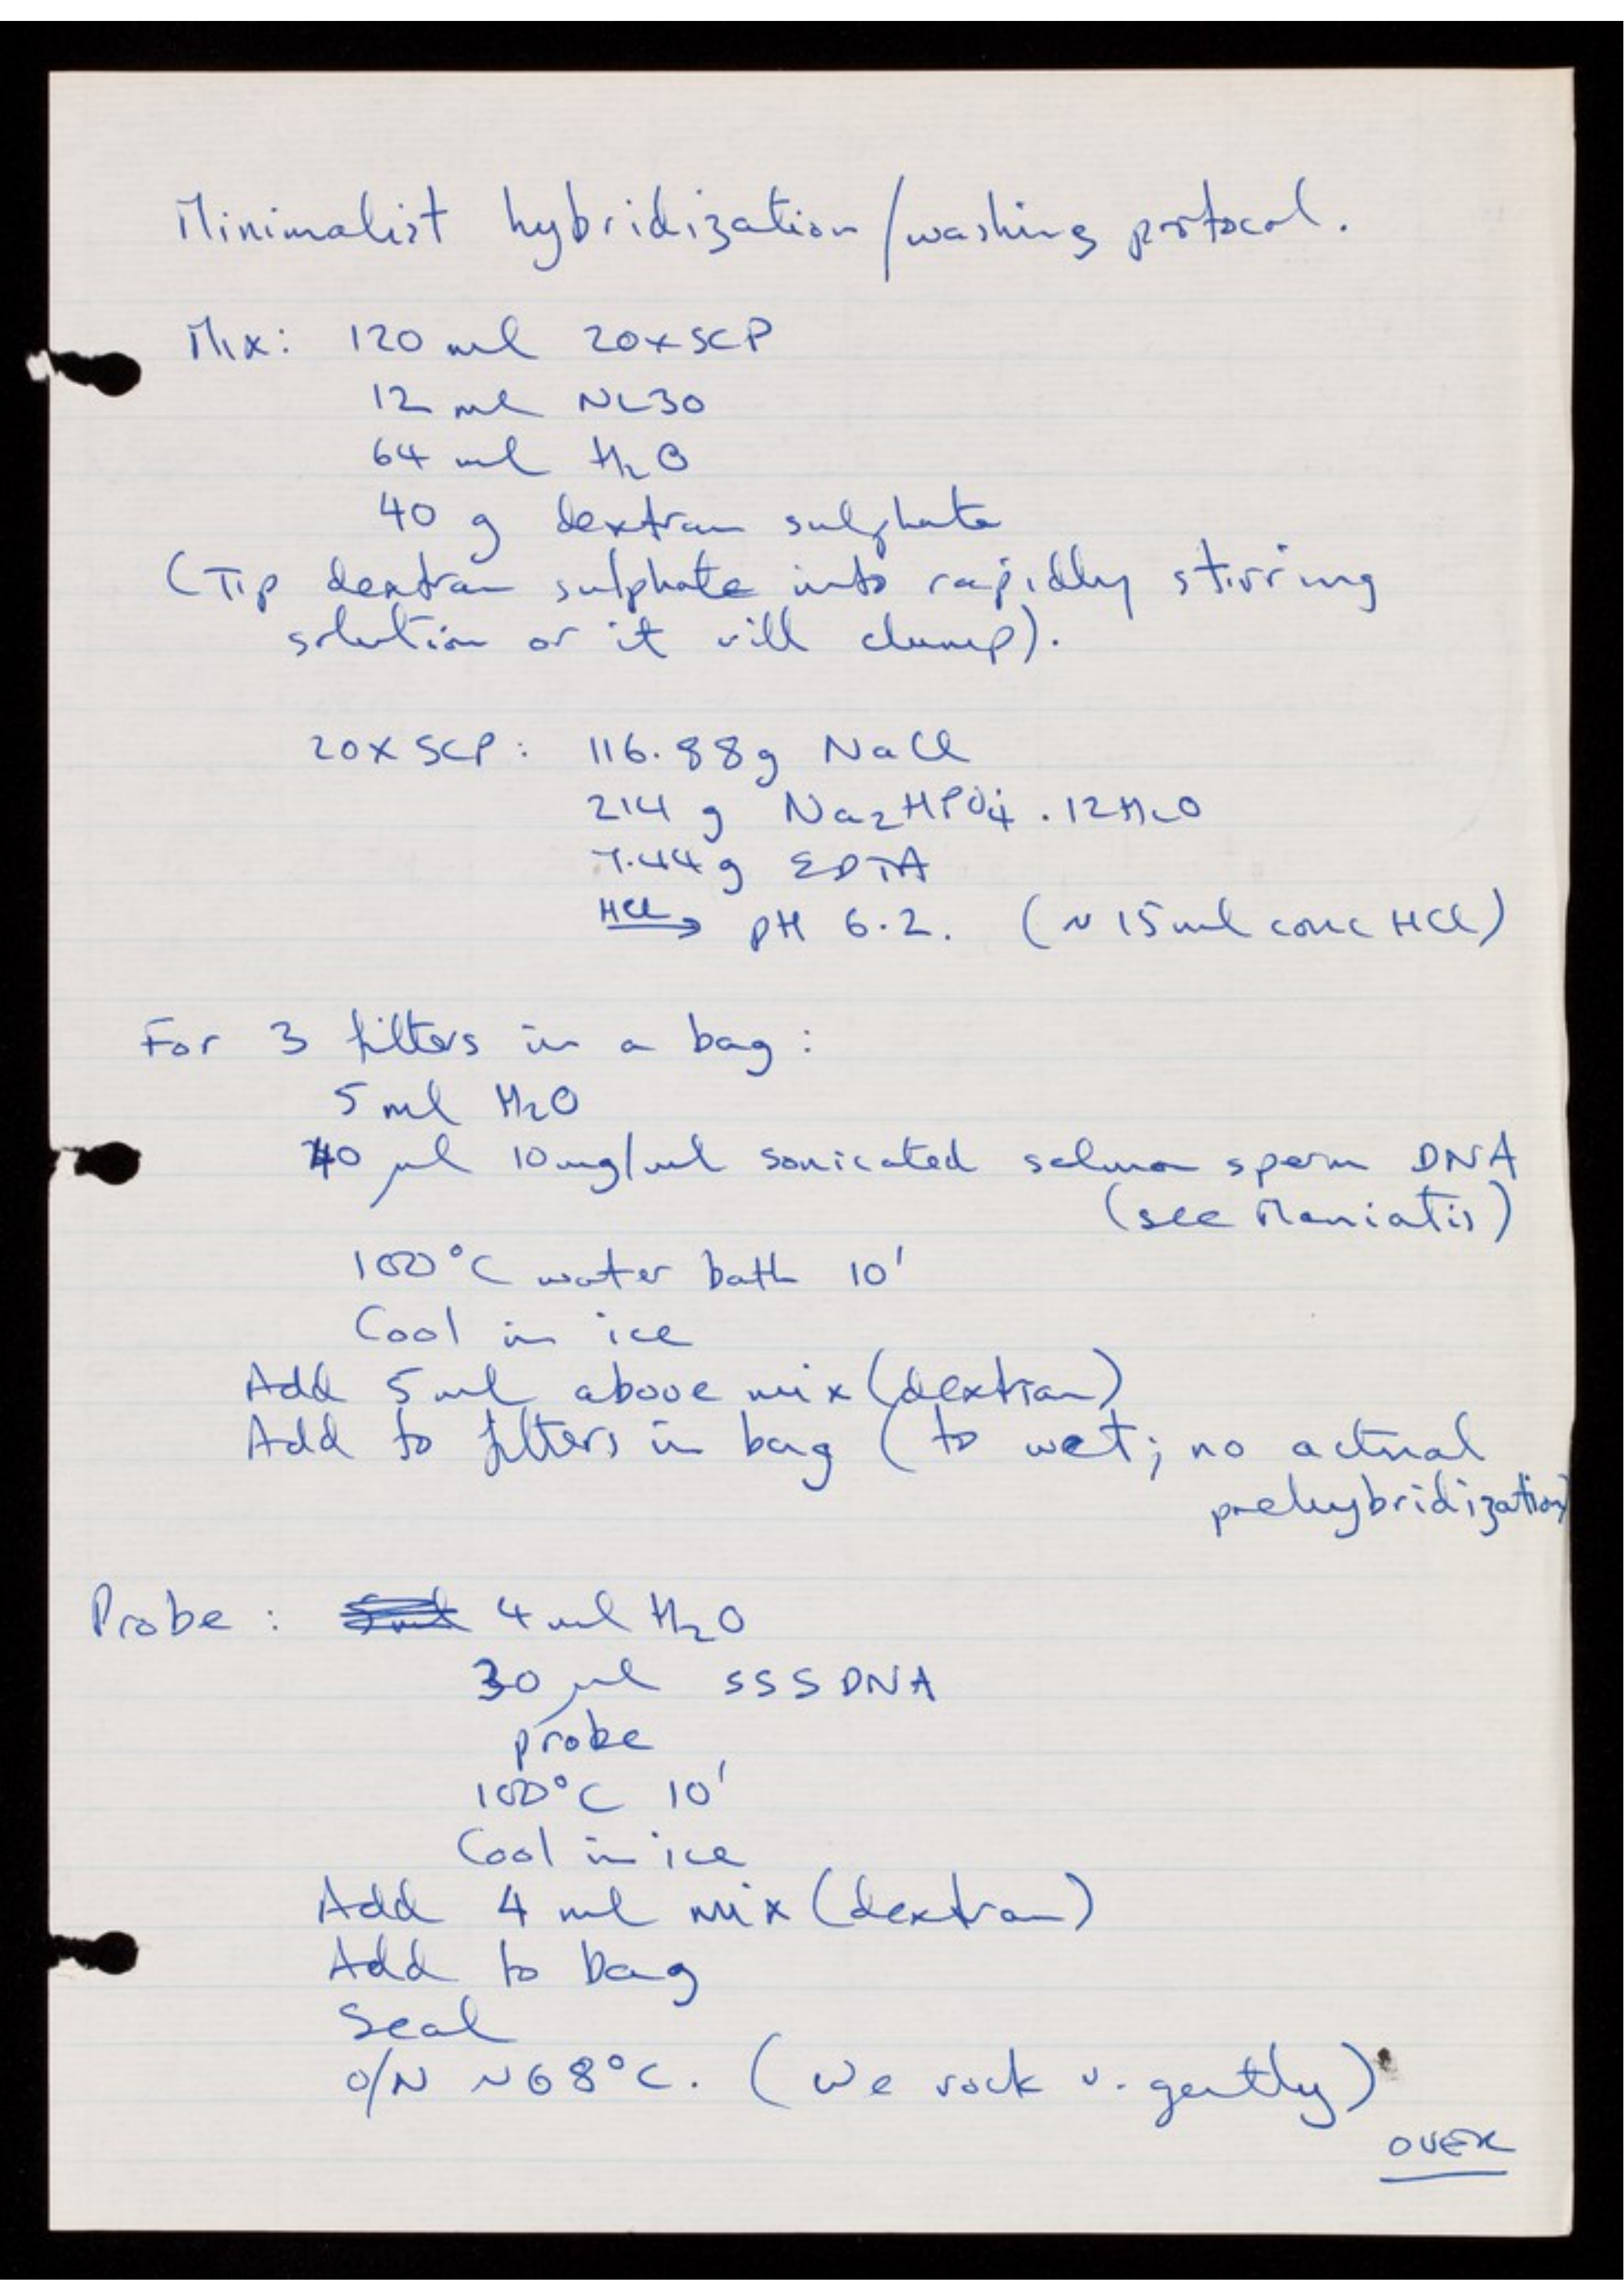 Minimalist hybridization/washing protocol.
Mix: 120 ml 20xSCP
12 ml NL30
64 ml H2O
40 g dextran sulphate
(Tip dextran sulphate into rapidly stirring
solution or it will clump).
20x SCP: 116.88g NaCl
214 g Na2HPO4.12H2O
7.44g EDTA
HCl → pH 6.2. (~15ml conc HCl)
For 3 filters in a bag:
5 ml H2O
40 µl 10mg/ml sonicated salmon sperm DNA
(see Maniatis)
100°C water bath 10'
Cool in ice
Add 5ml above mix (dextran)
Add to filters in bag (to wet; no actual
prehybridization)
Probe: 4 ml H2O
30 µl SSSDNA
probe
100°C 10'
Cool in ice
Add 4 ml mix (dextran)
Add to bag
Seal
O/N ~68°C. (We rock v. gently)
OVER